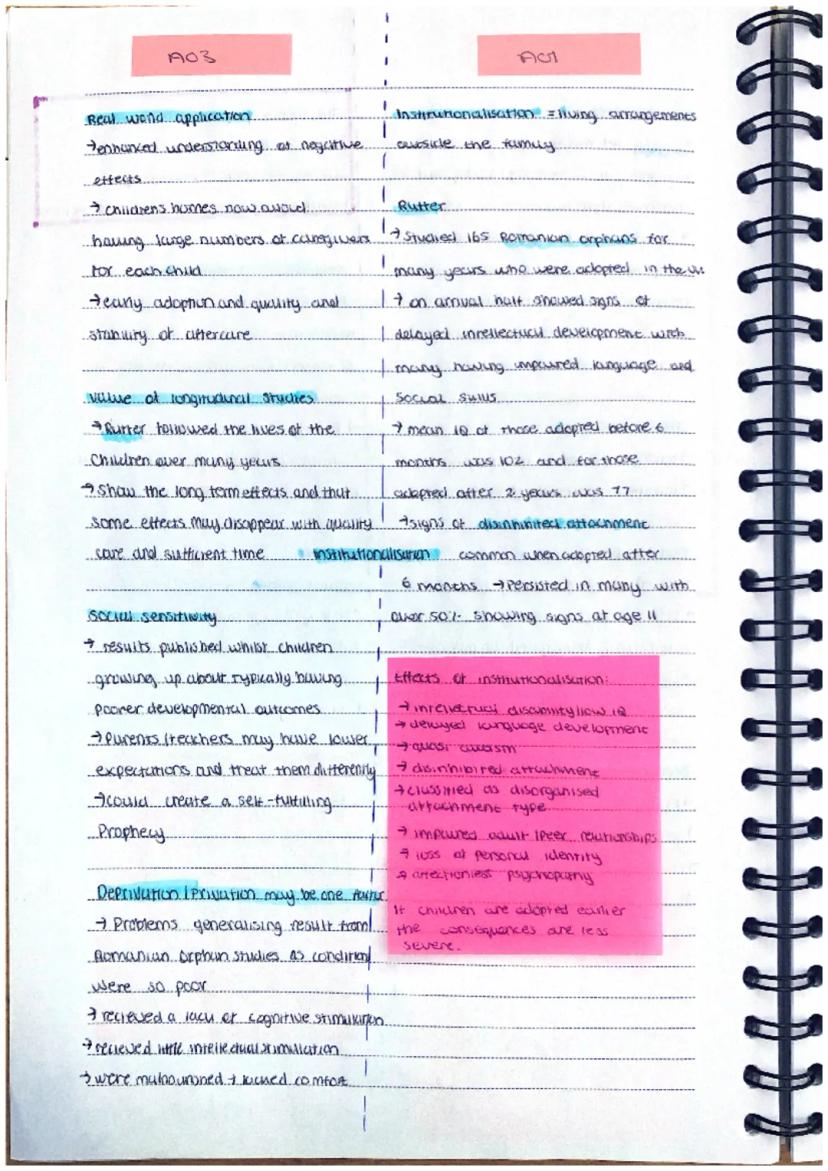 AO3
Real world application
→enhanced understanding of negative
effects
→ childrens homes now avoid
having large numbers of caregivers
for each child
→early adoption and quality and
stability of aftercare
Value of longitudinal studies
→Rutter followed the lives of the
Children over many years
→ Show the long term effects and that
some effects may disappear with quality
care and sufficient time
Social sensitivity
→ results published whilst children
growing up about typically having
poorer developmental outcomes
→Parents/teachers may have lower
expectations and treat them differently
→could create a self-fulfilling
Prophecy
Deprivation/Privation may be one factor
→ Problems generalising result from
Romanian Orphan studies as condition
were so poor
→ recieved a lack of cognitive stimulation
→ recieved little intellectual stimulation
→ were malnourished + lacked comfort
institutionalisation
AO1
Institutionalisation = living arrangements
outside the family
Rutter
→ Studied 165 Romanian orphans for
many years who were adopted in the UK
→ on arrival half showed signs of
delayed intellectual development with
many having impaired language and
Social skills
→ mean IQ of those adopted before 6
months was 102 and for those
adopted after 2 years was 77
→signs of disinhibited attachment
common when adopted after
6 months → Persisted in many with
over 50% showing signs at age 11
Effects of institutionalisation:
→ intellectual disability/low IQ
→ delayed language development
→ quasi autism
→ disinhibited attachment
→ classified as disorganised
attachment type
→ impaired adult/peer relationships
→ loss of personal identity
→ affectionless psychopathy
If children are adopted earlier
the consequences are less
severe.